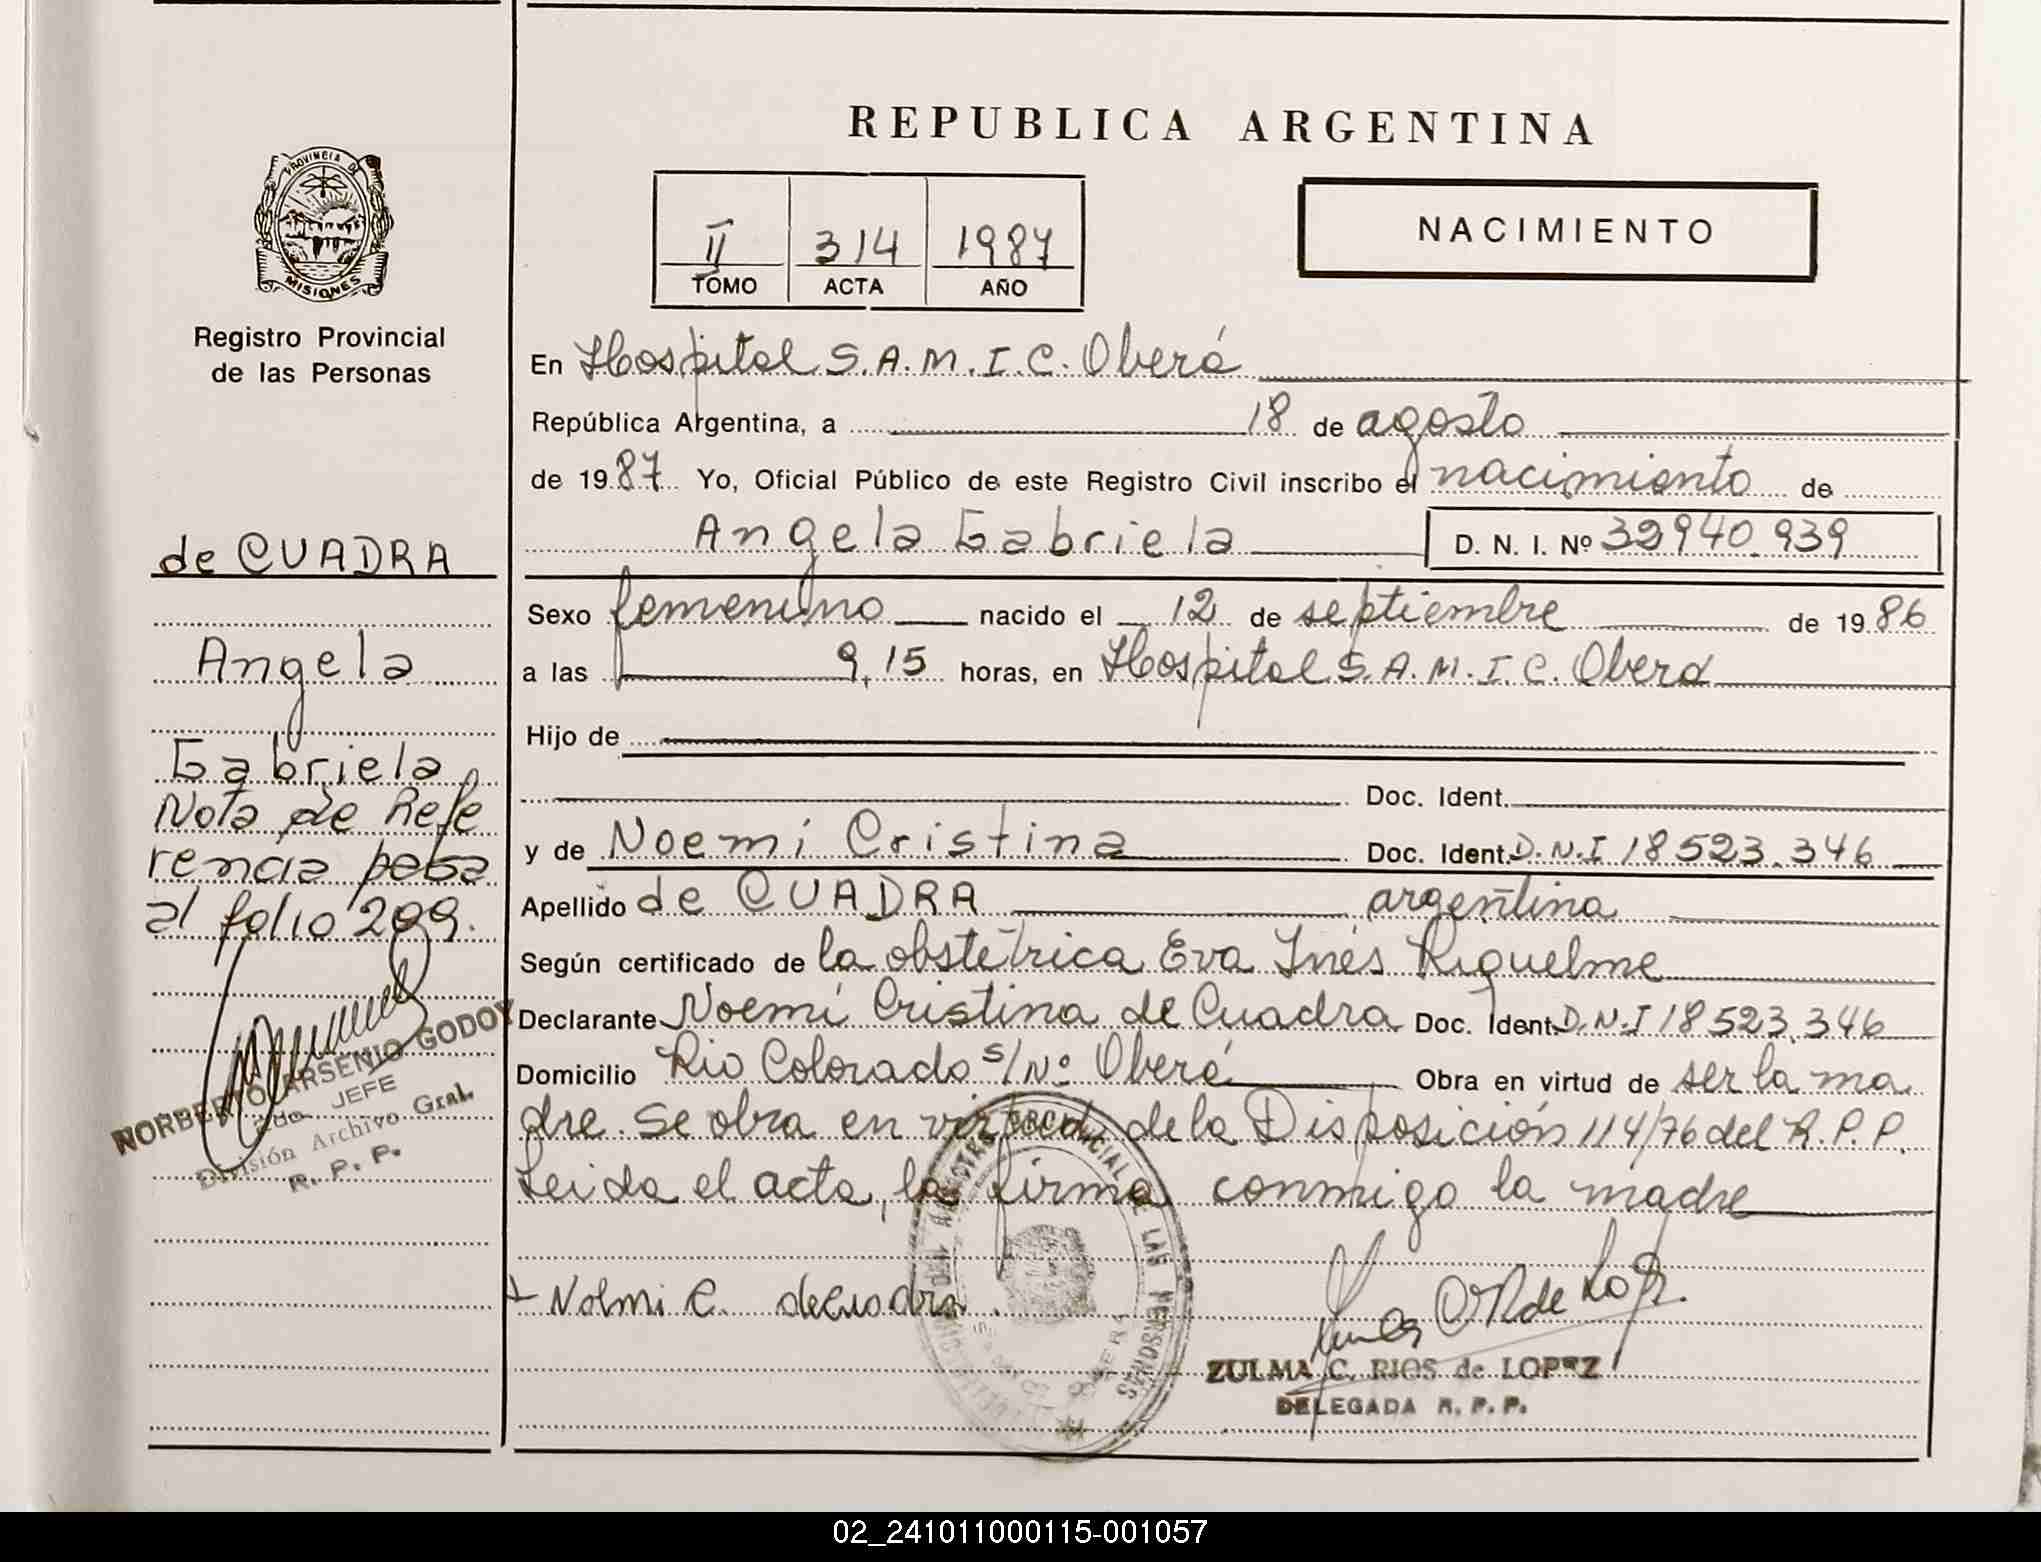 REPUBLICA ARGENTINA
PROVINCIA DE
MISIONES
Registro Provincial
de las Personas
II 314 1987
TOMO ACTA AÑO
NACIMIENTO
de CUADRA
Angela
Gabriela
Nota de Refe
rencia pasa
al folio 209.
NORBERTO ARSENIO GODOY
2do JEFE
División Archivo Gral.
R. P. P.
En Hospital S.A.M.I.C. Oberá
República Argentina, a 18 de agosto
de 1987 Yo, Oficial Público de este Registro Civil inscribo el nacimiento de
Angela Gabriela D. N. I. Nº 32940.939
Sexo femenino nacido el 12 de septiembre de 1986
a las 9,15 horas, en Hospital S.A.M.I.C. Oberá
Hijo de
Doc. Ident.
y de Noemi Cristina Doc. Ident. D.N.I 18523.346
Apellido de CUADRA argentina
Según certificado de la obstétrica Eva Inés Riquelme
Declarante Noemi Cristina de Cuadra Doc. Ident. D.N.I 18523.346
Domicilio Rio Colorado s/Nº Oberá Obra en virtud de ser la ma
dre. Se obra en virtud de la Disposición 114/76 del R.P.P.
Leida el acta, la firma conmigo la madre
Noemi C. decuadra.
ZULMA C. RIOS de LOPEZ
DELEGADA R. P. P.
02_241011000115-001057